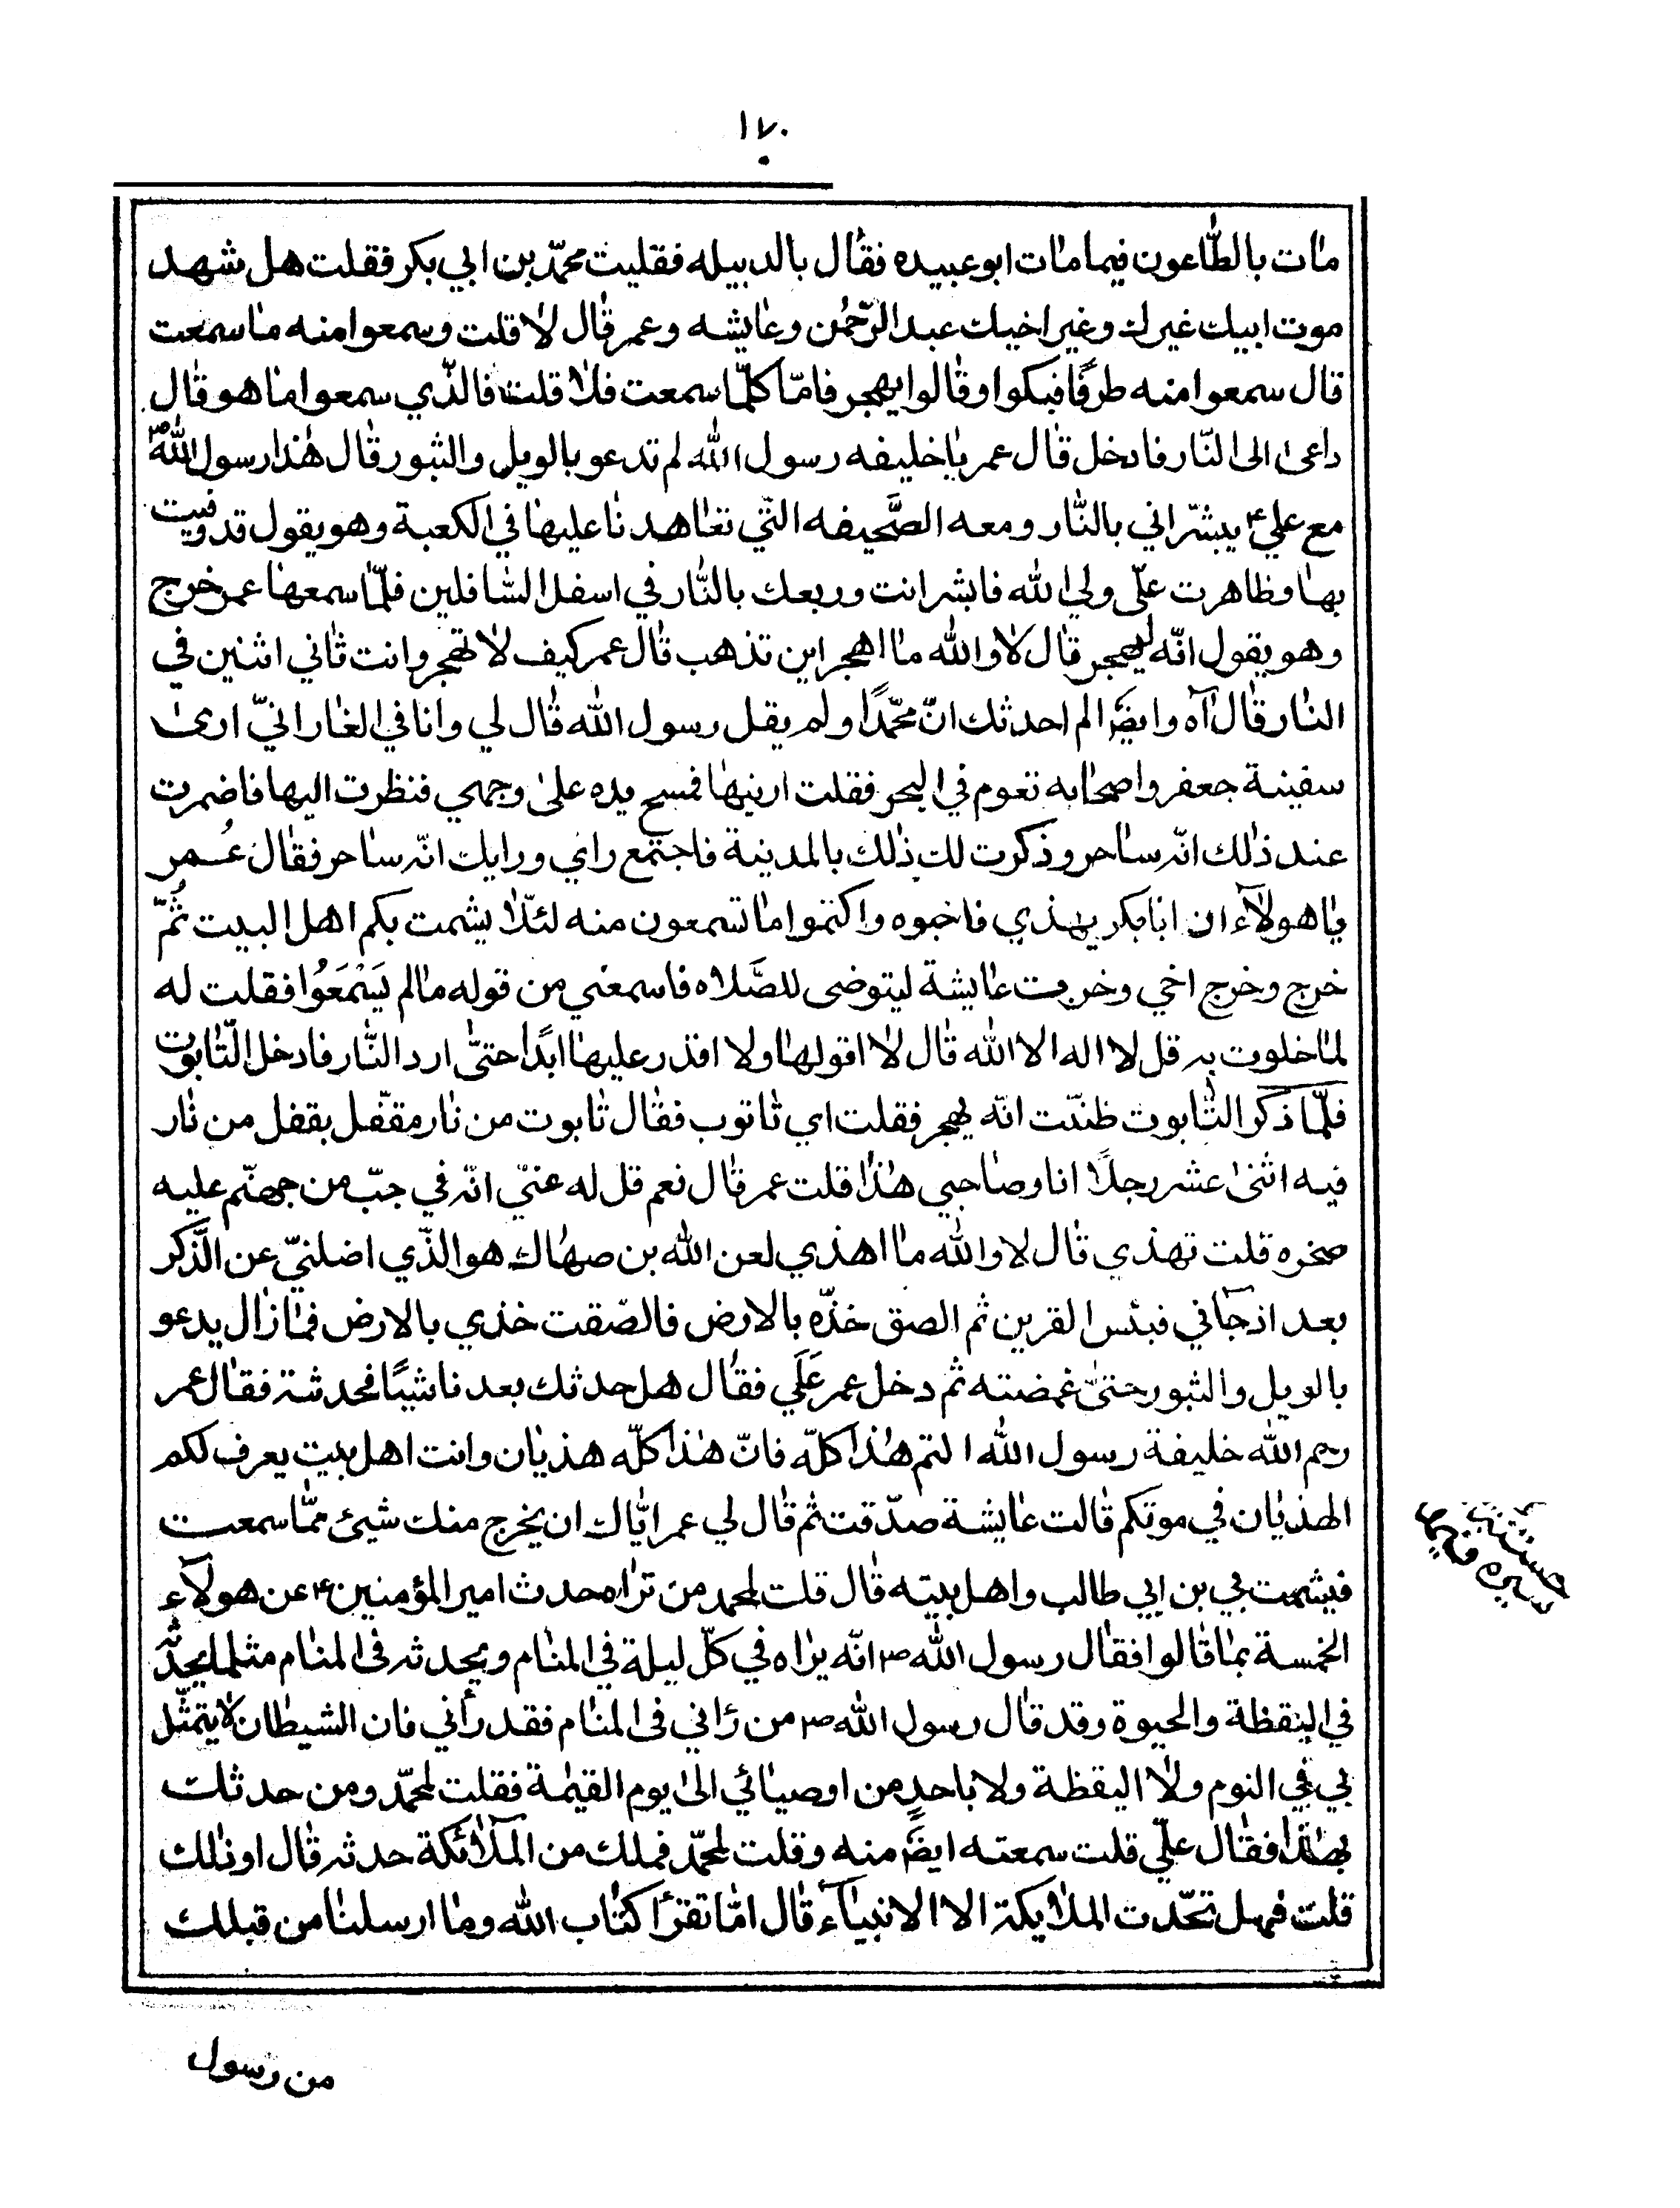 ١٧٠
مات بالطّاعون فيما مات ابوعبيده فقال بالدبيله فقليت محمّد بن ابي بكر فقلت هل شهد
موت ابيك غيرك وغير اخيك عبد الرّحمن وعايشه وعمر قال لا قلت وسمعوا منه ما سمعت
قال سمعوا منه طرفًا فبكوا وقالوا يهجر فامّا كلّما سمعت فلا قلت فالذّي سمعوا ما هو قال
داعى الى النّار فادخل قال عمر يا خليفه رسول الله لم تدعو بالويل والثبور قال هذا رسول الله ص
مع علي ع يبشّراني بالنّار ومعه الصّحيفه التّي تعاهدنا عليها في الكعبة وهو يقول قد وفيت
بها وظاهرت على ولي الله فابشر انت وربعك بالنّار في اسفل السّافلين فلمّا سمعها عمر خرج
وهو يقول انّه ليهجر قال لا والله ما اهجر اين تذهب قال عمر كيف لا تهجر وانت ثاني اثنين في
النار قال آه وايضًا الم احدثك انّ محمّدًا ولم يقل رسول الله قال لي وانا في الغار انيّ ارى
سفينة جعفر واصحابه تعوم في البحر فقلت ارينها فمسح يده على وجهي فنظرت اليها فاضمرت
عند ذلك انّه ساحر وذكرت لك ذلك بالمدينة فاجتمع راي ورايك انّه ساحر فقال عُمر
يا هولآء ان ابابكر يهذي فاخبوه واكتموا ما تسمعون منه لئلّا يشمت بكم اهل البيت ثُمّ
خرج وخرج اخي وخرجت عايشة ليتوضى للصّلاه فاسمعني من قوله ما لم يَسْمَعُوا فقلت له
لما خلوت به قل لا اله الا الله قال لا اقولها ولا اقدر عليها ابدًا حتّى ارد النّار فادخل التّابوت
فلمّا ذكر التّابوت ظننت انّه يهجر فقلت اي تاتوب فقال تابوت من نار مقفّل بقفل من نار
فيه اثنى عشر رجلًا انا وصاحبي هذا قلت عمر قال نعم قل له عنّي انّه في جبّ من جهنّم عليه
صخره قلت تهذي قال لا والله ما اهذي لعن الله بن صهاك هو الذّي اضلنيّ عن الذّكر
بعد اذ جآني فبئس القرين ثم الصق خدّه بالارض فالصّقت خدي بالارض فما زال يدعو
بالويل والثبور حتىّ غمضته ثم دخل عمر عَلَي فقال هل حدثك بعد نا شيئًا فحدثته فقال عمر
رحم الله خليفة رسول الله اكتم هذا كلّه فانّ هذا كلّه هذيان وانت اهل بيت يعرف لكم
الهذيان في موتكم قالت عايشة صدّقت ثم قال لي عمر ايّاك ان يخرج منك شيئ ممّا سمعت
فيشمت بي بن ابي طالب واهل بيته قال قلت لمحمد من تراه حدث امير المؤمنين ع عن هولآء
الخمسة بما قالوا فقال رسول الله ص انّه يراه في كلّ ليلة في المنام ويحدثه فى المنام مثلما يحدّثه
في اليقظة والحيوة وقد قال رسول الله ص من رٰاني فى المنام فقد رأني فان الشيطان لا يتمثّل
بي في النوم ولا اليقظة ولا باحدٍ من اوصيائي الى يوم القيمة فقلت لمحمّد ومن حدثك
بهذا فقال عليّ قلت سمعته ايضًا منه وقلت لمحمّد فملك من الملائكة حدثه قال او ذلك
قلت فهل تحّدت الملايكة الا الانبيآء قال امّا تقرأ كتاب الله وما ارسلنا من قبلك
من رسول